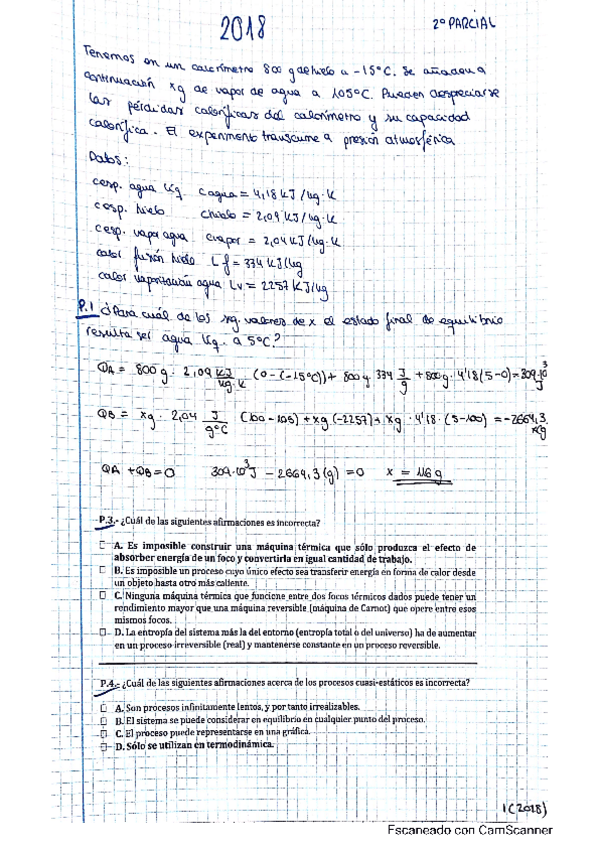 2018
2º PARCIAL
Tenemos en un calorímetro 800 g de hielo a -15°C. Se añaden a
continuación xg de vapor de agua a 105°C. Pueden despreciarse
las pérdidas caloríficas del calorímetro y su capacidad
calorífica. El experimento transcurre a presión atmosférica
Datos:
cesp. agua líq. cagua = 4,18 KJ/kg·K
cesp. hielo chielo = 2,09 KJ/kg·K
cesp. vapor agua cvapor = 2,04 KJ/kg·K
calor fusión hielo Lf = 334 KJ/kg
calor vaporización agua Lv = 2257 KJ/kg
P.1 ¿Para cuál de los sig. valores de x el estado final de equilibrio
resulta ser agua líq. a 5°C?
QA = 800 g · 2,09 KJ/kg·K (0-(-15°C)) + 800 g 334 J/g + 800g · 4'18 (5-0) = 309·10³ J
QB = xg · 2,04 J/g°C (100-105) + xg (-2257) + xg · 4'18 · (5-100) = -2664,3
QA + QB = 0 309·10³ J - 2664,3 (g) = 0 x = 116 g
P.3.- ¿Cuál de las siguientes afirmaciones es incorrecta?
A. Es imposible construir una máquina térmica que sólo produzca el efecto de
absorber energía de un foco y convertirla en igual cantidad de trabajo.
B. Es imposible un proceso cuyo único efecto sea transferir energía en forma de calor desde
un objeto hasta otro más caliente.
C. Ninguna máquina térmica que funcione entre dos focos térmicos dados puede tener un
rendimiento mayor que una máquina reversible (máquina de Carnot) que opere entre esos
mismos focos.
D. La entropía del sistema más la del entorno (entropía total o del universo) ha de aumentar
en un proceso irreversible (real) y mantenerse constante en un proceso reversible.
P.4.- ¿Cuál de las siguientes afirmaciones acerca de los procesos cuasi-estáticos es incorrecta?
A. Son procesos infinitamente lentos, y por tanto irrealizables.
B. El sistema se puede considerar en equilibrio en cualquier punto del proceso.
C. El proceso puede representarse en una gráfica.
D. Sólo se utilizan en termodinámica.
1(2018)
Escaneado con CamScanner